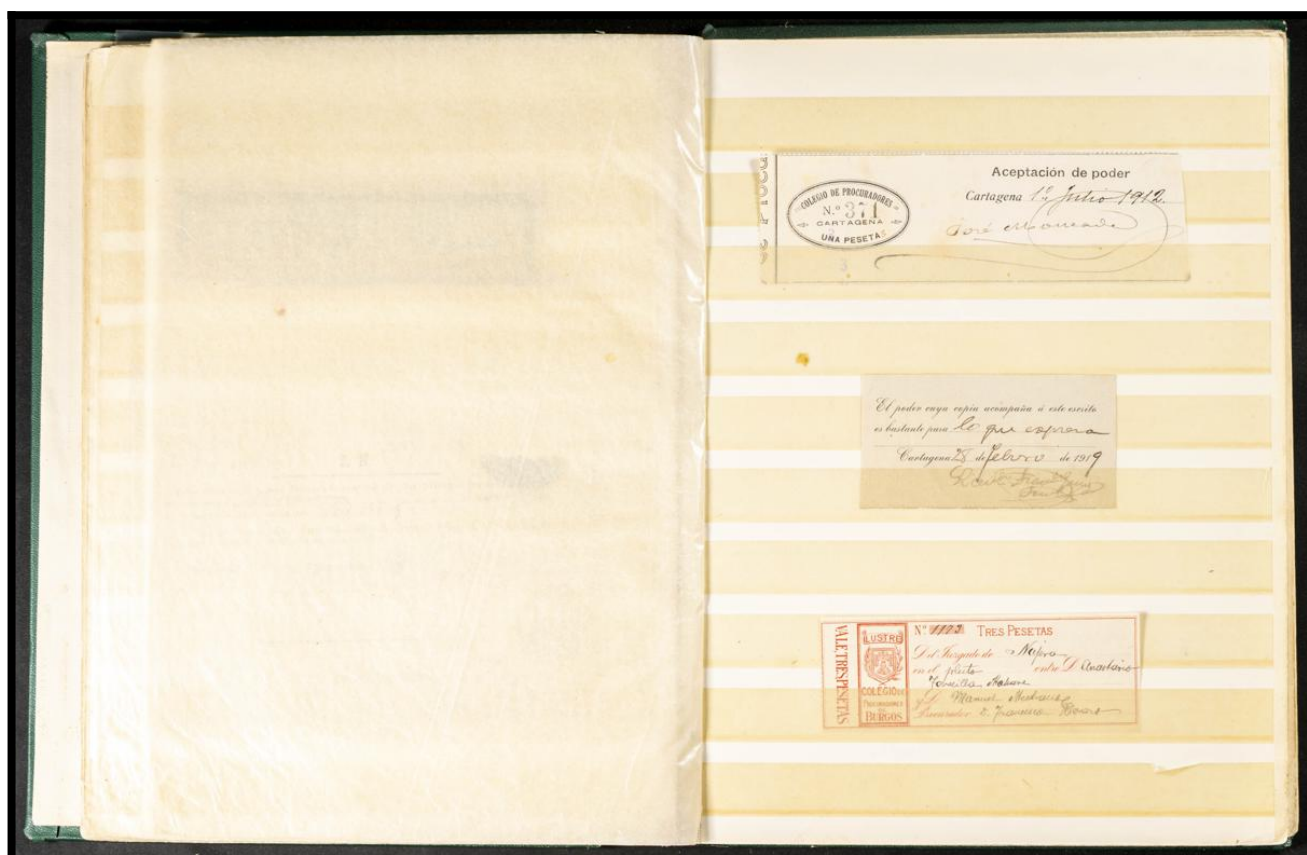 Aceptación de poder
COLEGIO DE PROCURADORES
N.º 371
CARTAGENA
UNA PESETAS
Cartagena 1º Julio 1912.
José Moncada
El poder cuya copia acompaña á este escrito
es bastante para lo que expresa
Cartagena 28 de febrero de 1919
VALE TRES PESETAS
ILUSTRE
COLEGIO DE
PROCURADORES
DE
BURGOS
Nº 1173 TRES PESETAS
Del Juzgado de Nájera
en el pleito entre D. Anastasio
y D. Manuel
Procurador D. Francisco